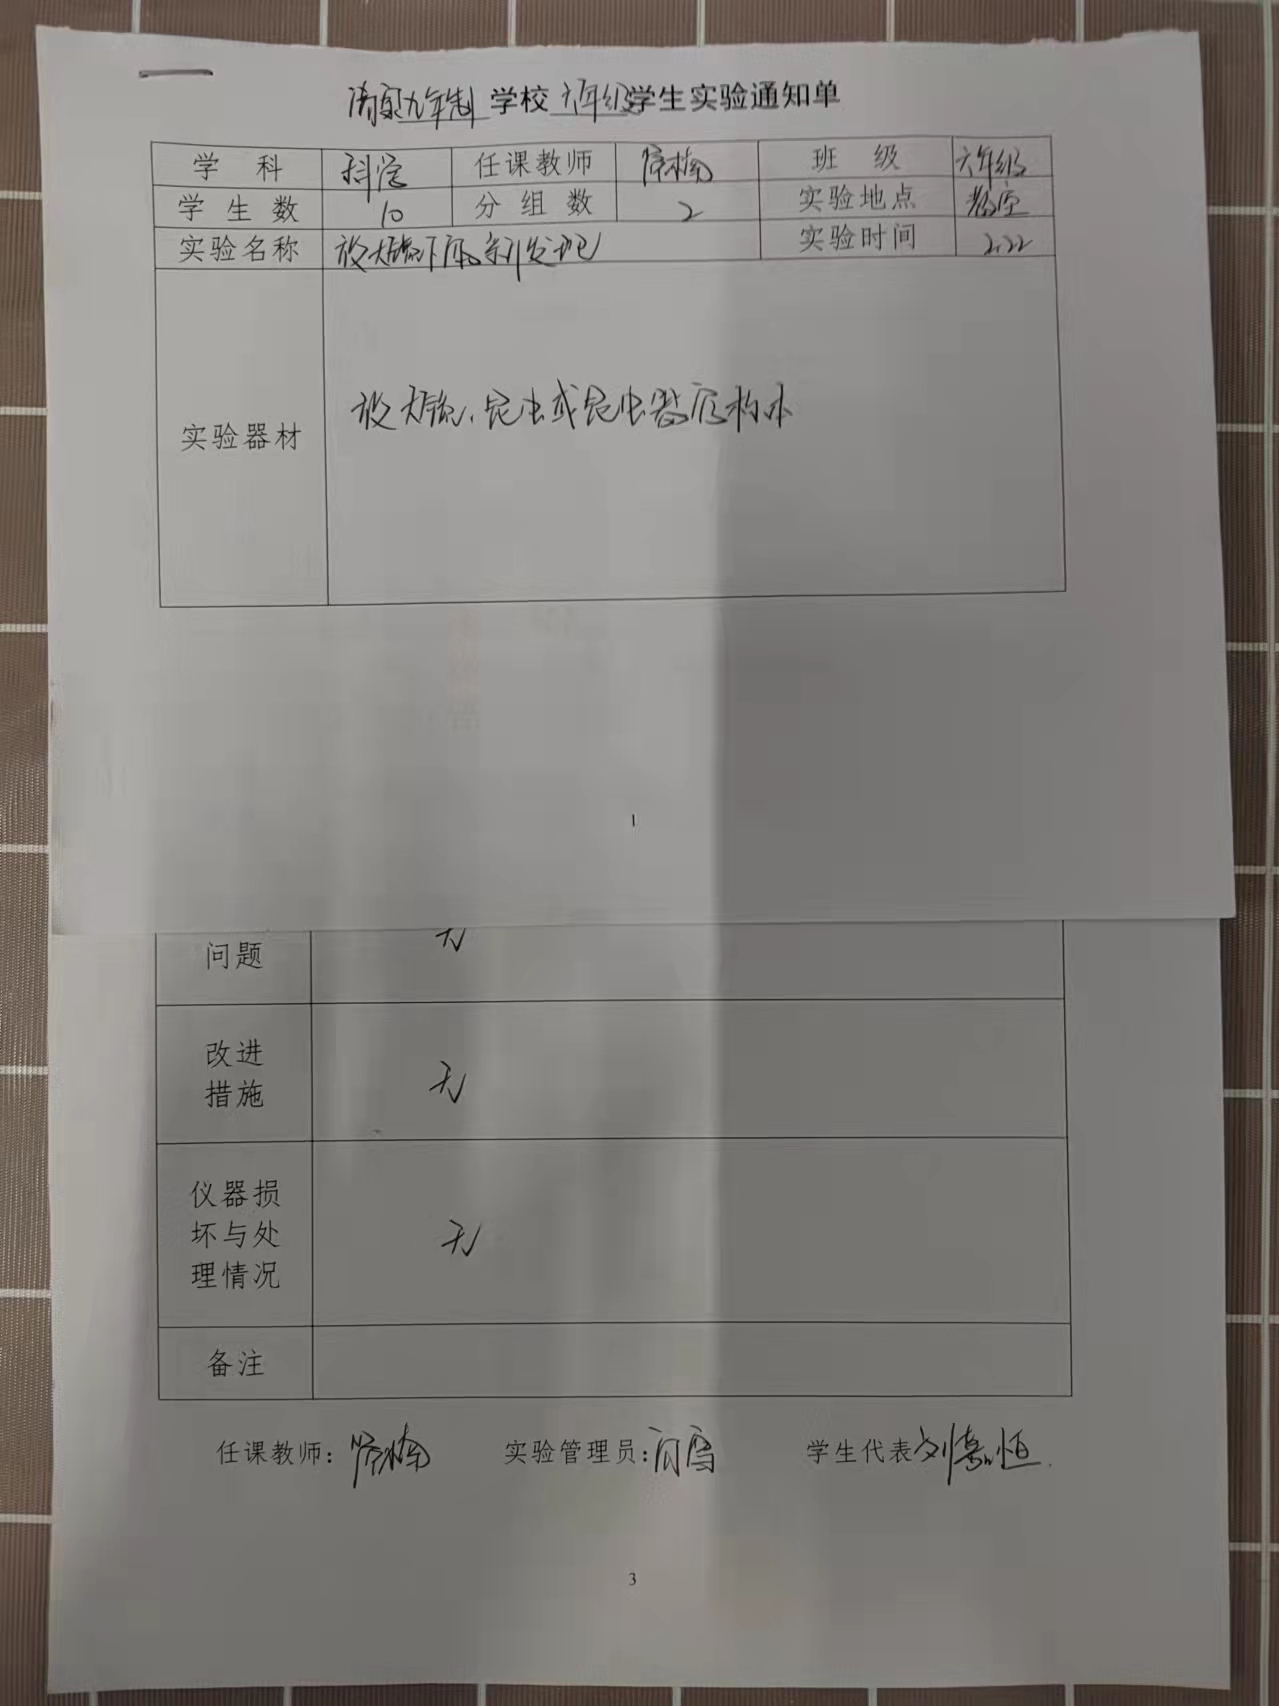 九年制学校六年级学生实验通知单
学科 科学 任课教师 楠 班级 六年级
学生数 10 分组数 2 实验地点 教室
实验名称 放大镜下的新发现 实验时间 2.22
实验器材 放大镜、昆虫或昆虫器官标本
1
问题 无
改进措施 无
仪器损坏与处理情况 无
备注
任课教师: 楠 实验管理员: 闫雪 学生代表 刘嘉恒
3